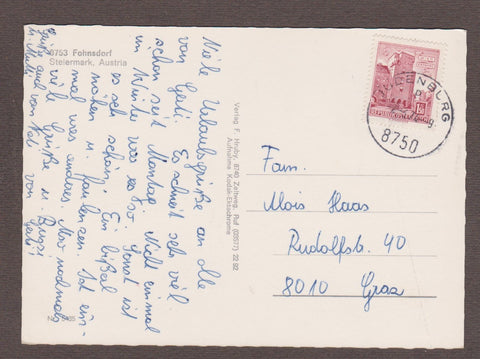 8753 Fohnsdorf
Steiermark, Austria
Viele Urlaubsgrüße an alle
von Gerti. Es schneit sehr viel
schon seit Montag. Nicht einmal
im Winter war es so. Sonst ist
es sehr schön. Ein bißal
nähen u. faulenzen. Ist ein-
mal was anders. Also nochmals
viele Grüße u. Bussi
Gerti
Grüße auch von
von
Verlag F. Hruby, 8740 Zeltweg, Ruf (03577) 22 92
Aufnahme: Kodak-Ektachrome
REPUBLIK ÖSTERREICH
JUDENBURG
8750
Fam.
Alois Haas
Rudolfstr. 40
8010 Graz